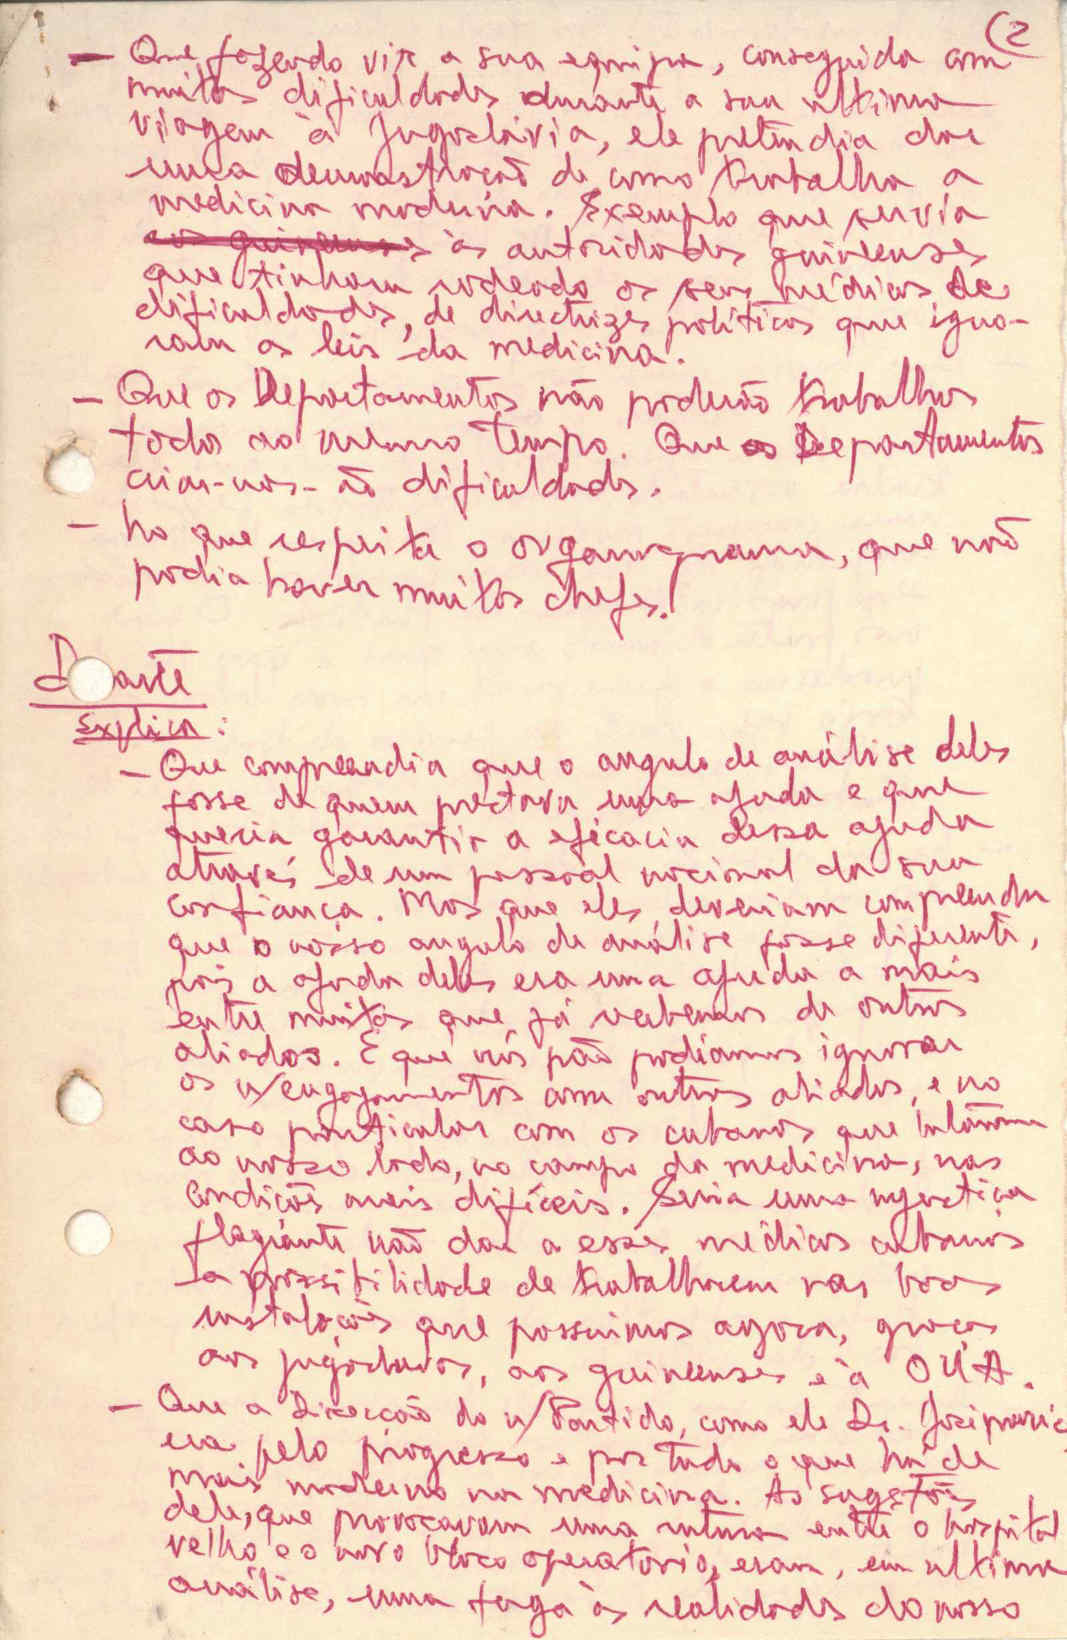 (2
— Que, fazendo vir a sua equipa, conseguida com
muitas dificuldades durante a sua última
viagem à Jugoslávia, ele pretendia dar
uma demonstração de como trabalha a
medicina moderna. Exemplo que servia
às autoridades guineenses
que tinham rodeado os seus médicos de
dificuldades, de directrizes políticas que igno-
ram as leis da medicina.
— Que os Departamentos não poderão trabalhar
todos ao mesmo tempo. Que os Departamentos
criar-nos-ão dificuldades.
— No que respeita o organograma, que não
podia haver muitos chefes!
D arte
Explica:
— Que compreendia que o angulo de análise deles
fosse de quem prestava uma ajuda e que
queria garantir a eficacia dessa ajuda
através de um pessoal nacional da sua
confiança. Mas que eles deveriam compreender
que o nosso angulo de análise fosse diferente,
pois a ajuda deles era uma ajuda a mais
entre muitas que já recebemos de outros
aliados. E que nós não podíamos ignorar
os n/engajamentos com outros aliados, e no
caso particular com os cubanos que lutaram
ao nosso lado, no campo da medicina, nas
condições mais difíceis. Seria uma injustiça
flagrante não dar a esses médicos cubanos
a possibilidade de trabalharem nas boas
instalações que possuimos agora, graças
aos jugoslavos, aos guineenses e à OUA.
— Que a Direcção do n/Partido, como ele Dr.
era pelo progresso e por tudo o que há de
mais moderno na medicina. As sugestões
dele, que provocavam uma rutura entre o hospital
velho e o novo bloco operatorio, eram, em ultima
análise, uma fuga às realidades do nosso